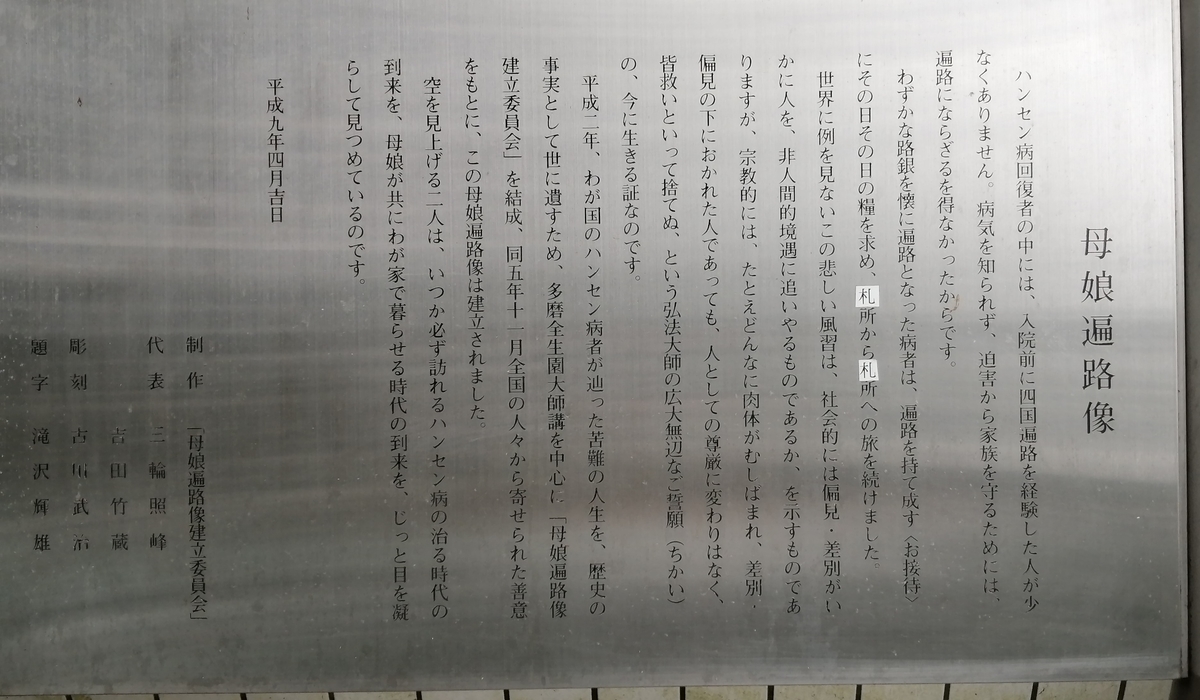 母娘遍路像
ハンセン病回復者の中には、入院前に四国遍路を経験した人が少
なくありません。病気を知られず、迫害から家族を守るためには、
遍路にならざるを得なかったからです。
わずかな路銀を懐に遍路となった病者は、遍路を持て成す〈お接待〉
にその日その日の糧を求め、札所から札所への旅を続けました。
世界に例を見ないこの悲しい風習は、社会的には偏見・差別がい
かに人を、非人間的境遇に追いやるものであるか、を示すものであ
りますが、宗教的には、たとえどんなに肉体がむしばまれ、差別・
偏見の下におかれた人であっても、人としての尊厳に変わりはなく、
皆救いといって捨てぬ、という弘法大師の広大無辺なご誓願（ちかい）
の、今に生きる証なのです。
平成二年、わが国のハンセン病者が辿った苦難の人生を、歴史の
事実として世に遺すため、多磨全生園大師講を中心に「母娘遍路像
建立委員会」を結成、同五年十一月全国の人々から寄せられた善意
をもとに、この母娘遍路像は建立されました。
空を見上げる二人は、いつか必ず訪れるハンセン病の治る時代の
到来を、母娘が共にわが家で暮らせる時代の到来を、じっと目を凝
らして見つめているのです。
平成九年四月吉日
制作　「母娘遍路像建立委員会」
代表　三輪照峰
吉田竹蔵
彫刻　古川武治
題字　滝沢輝雄